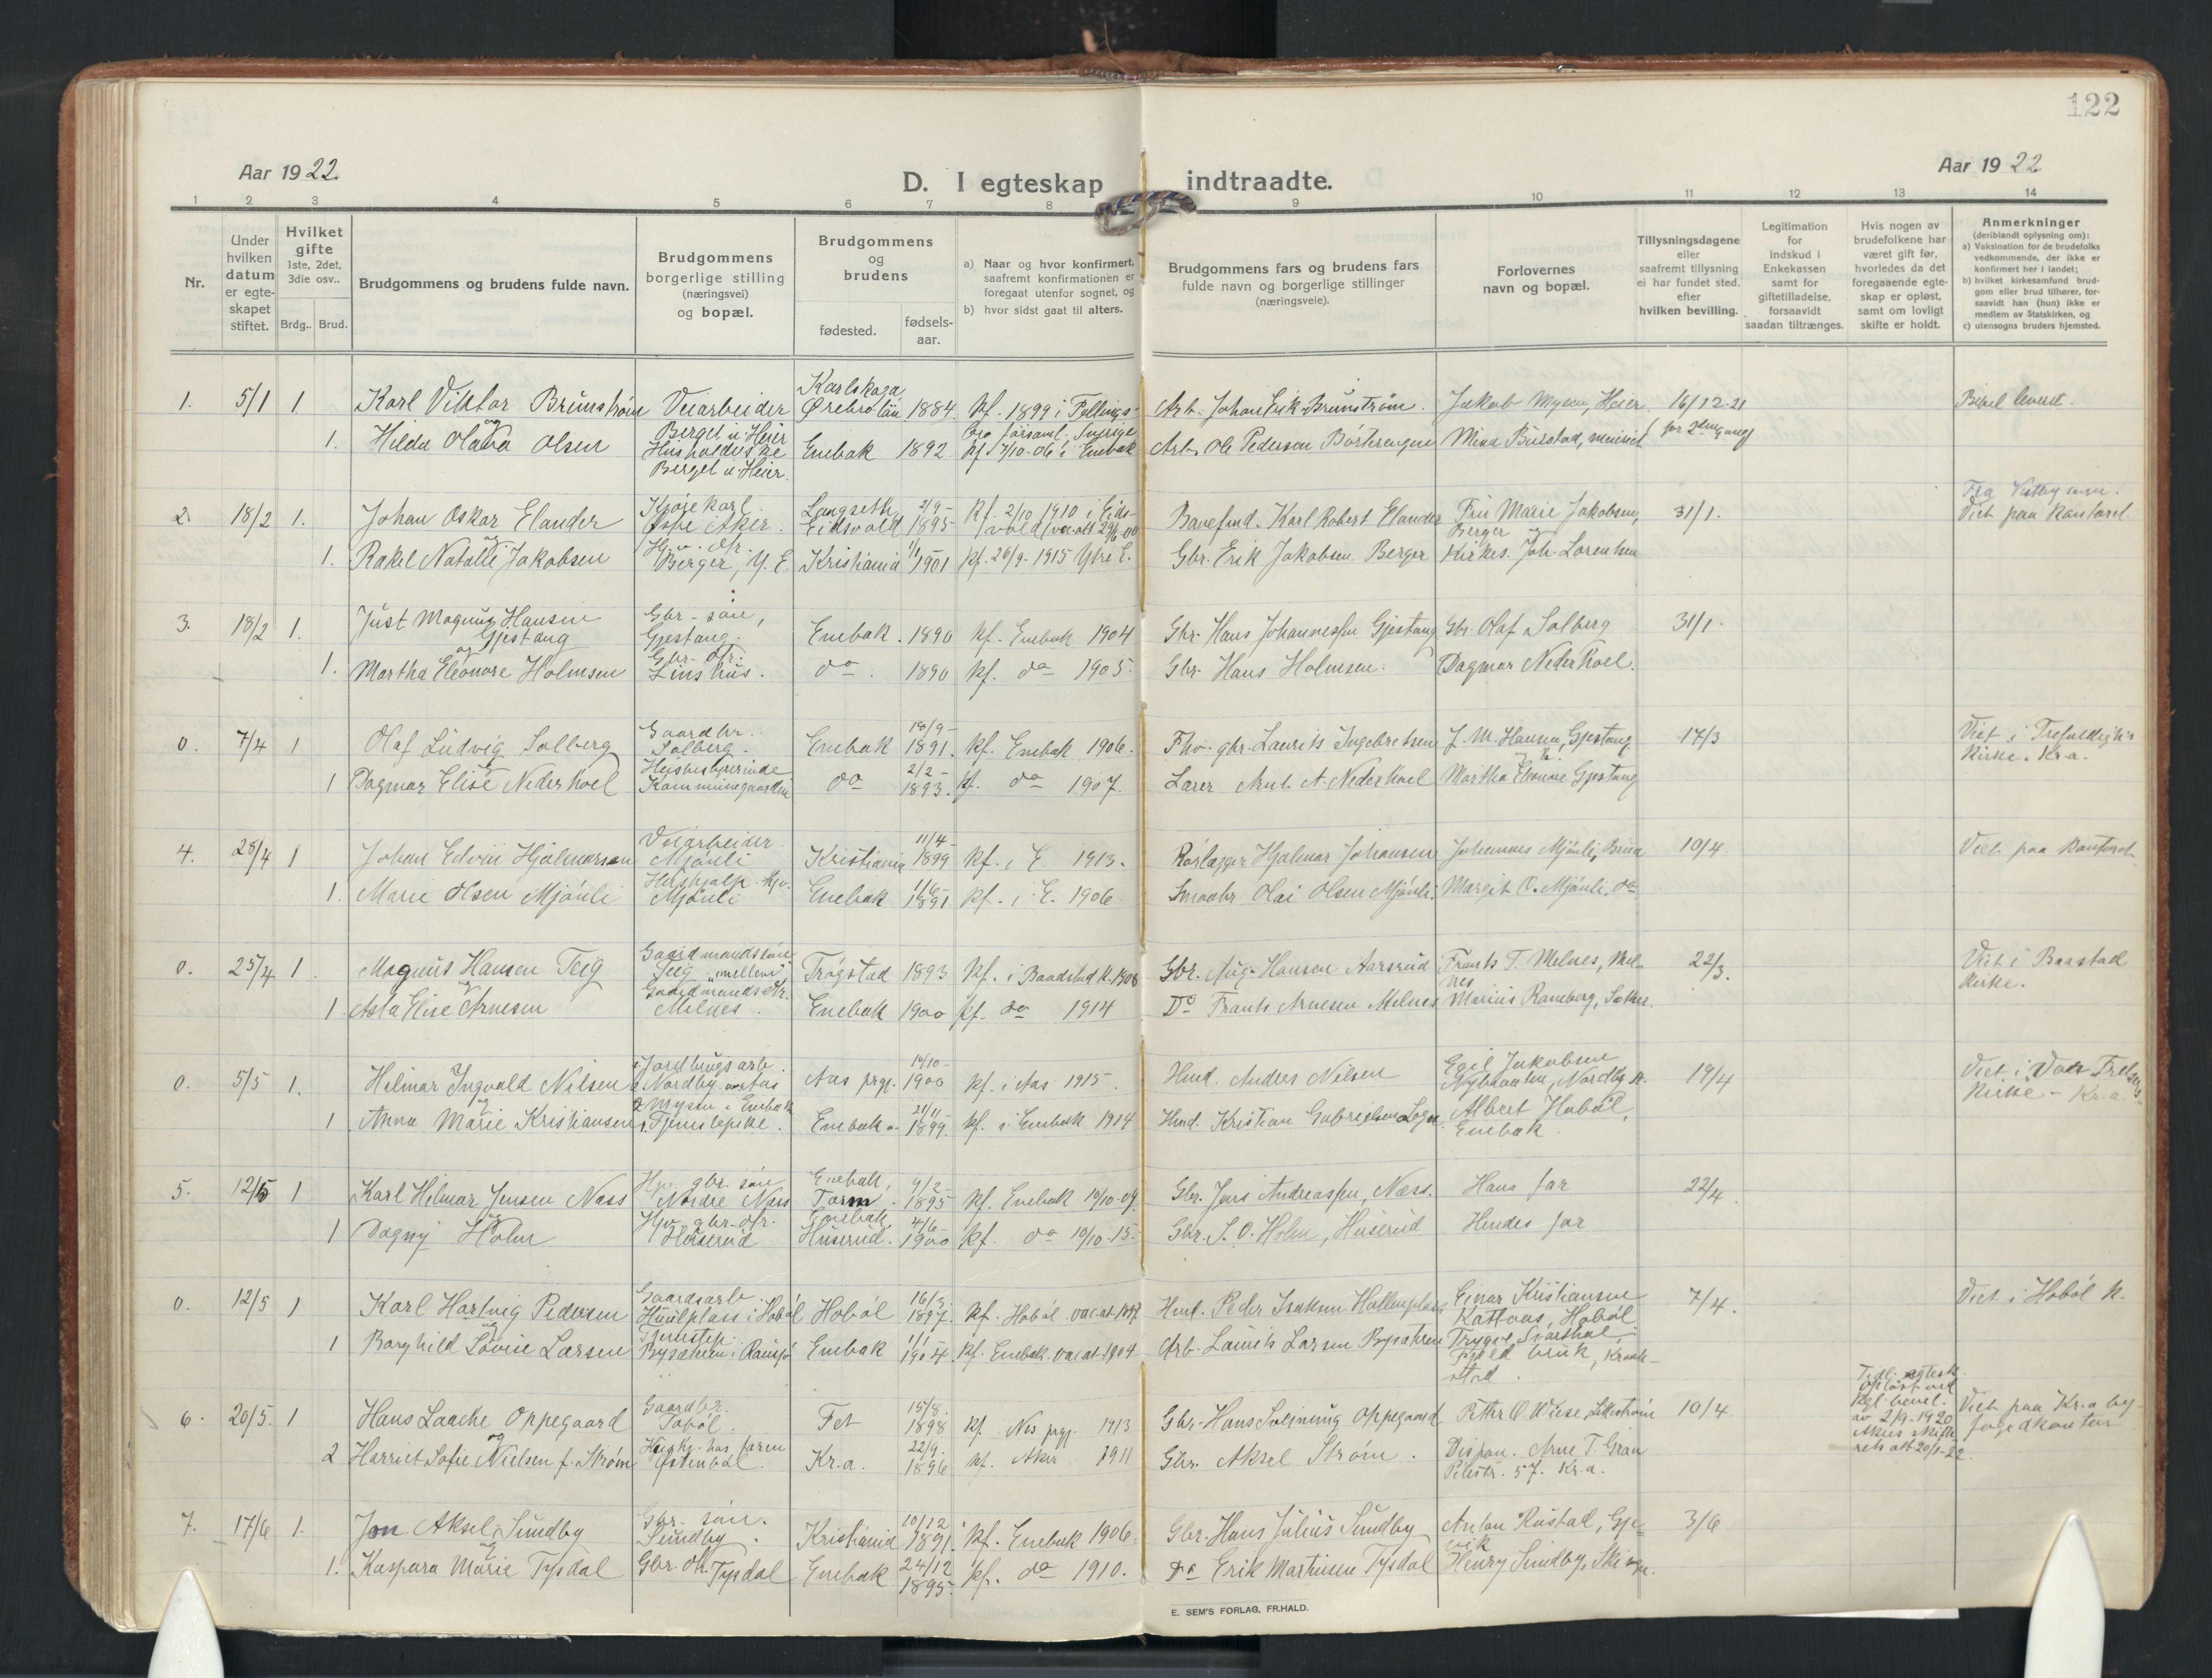 122
Aar 1922.
D. I egteskap indtraadte.
Aar 1922
1 2 3 4 5 6 7 8 9 10 11 12 13 14
Nr.
Under hvilken datum er egteskapet stiftet.
Hvilket gifte 1ste, 2det, 3die osv..
Brdg.. Brud.
Brudgommens og brudens fulde navn.
Brudgommens borgerlige stilling (næringsvei) og bopæl.
Brudgommens og brudens
fødested.
fødsels-aar.
a) Naar og hvor konfirmert, saafremt konfirmationen er foregaat utenfor sognet, og
b) hvor sidst gaat til alters.
Brudgommens fars og brudens fars fulde navn og borgerlige stillinger (næringsveie).
Forlovernes navn og bopæl.
Tillysningsdagene eller saafremt tillysning ei har fundet sted, efter hvilken bevilling.
Legitimation for indskud i Enkekassen samt for giftetilladelse, forsaavidt saadan tiltrænges.
Hvis nogen av brudefolkene har været gift før, hvorledes da det foregaaende egteskap er opløst, samt om lovligt skifte er holdt.
Anmerkninger (deriblandt oplysning om):
a) Vaksination for de brudefolks vedkommende, der ikke er konfirmert her i landet;
b) hvilket kirkesamfund brudgom eller brud tilhører, forsaavidt han (hun) ikke er medlem av Statskirken, og
c) utensogns bruders hjemsted.
1. 5/1 1 Karl Viktor Brunstrøm Veiarbeider Berget u. Heier Karlskoga Ørebro län 1884 kf. 1899 i Fellingsbro församl. Sverige Arb. Johan Erik Brunstrøm. Jakob Mysen, Heier 16/12-21 for 2den gang Bevel levert.
og
1. Hilda Olava Olsen Husholderske Berget u. Heier. Enebak 1892 kf. 7/10-06 i Enebak Arb. Ole Pedersen Børterengen Mina Burstad,
2. 18/2 1. Johan Oskar Elander Kjørekarl Østre Aker. Langseth Eidsvold 2/9-1895 kf. 2/10 1910 i Eidsvold Banefmd. Karl Robert Elander Fru Marie Jakobsen, Berger 31/1. Viet paa kontoret.
og
1. Rakel Natalie Jakobsen Hjv. dtr. Berger, Y. E. Kristiania 1/1 1901 kf. 26/9-1915 Ytre E. Gbr. Erik Jakobsen Berger Kirkes. Joh. Lorentsen
3. 18/2 1. Just Magnus Hansen Gjestang Gbr-søn, Gjestang. Enebak. 1890 kf. Enebak 1904 Gbr. Hans Johannessen Gjestang Gbr. Olaf Solberg 31/1.
og
1. Martha Eleonore Holmsen Gbr-dtr. Linshus. do. 1890 kf. do 1905. Gbr. Hans Holmsen. Dagmar Nederkoel.
0. 7/4 1 Olaf Ludvig Solberg Gaardbr. Solberg. Enebak 18/9-1891. kf. Enebak 1906. Fhv. gbr. Laurits Ingebretsen J. M. Hansen, Gjestang, 17/3 Viet i Trefoldigh.s Kirke. Kr.a.
og
1 Dagmar Elise Nederkoel Husbestyrerinde Kommunegaarden do 2/2-1893. kf. do 1907. Lærer Arnt A. Nederkoel Martha Eleonore Gjestang
4. 28/4 1 Johan Edvin Hjalmarsen Veiarbeider Mjønli Kristiania 11/4-1899 kf. i E. 1913. Rørlægger Hjalmar Johansen Johannes Mjønli, 10/4 Viet paa kontoret
1. Marie Olsen Mjønli Hushjælp hjv. Mjønli Enebak 1891 kf. i E. 1906. Smaabr. Olai Olsen Mjønli. Margit O. Mjønli, do
0. 25/4 1. Magnus Hansen Teig Gaardmandssøn Teig "mellem" Trøgstad 1893 kf. i Baadstad k. 1908 Gbr. Aug. Hansen Aarsrud Frants T. Melnes, Melnes 22/3. Viet i Baastad Kirke.
og
1. Asta Elise Arnesen Gaardmandsdtr. Melnes. Enebak 1900 kf. do 1914 Do Frants Arnesen Melnes Marius Raneberg,
0. 5/5 1. Hilmar Ingvald Nilsen Jordbrugsarb. Nordby Aas Aas prgj. 10/10-1900 kf. i Aas 1915. Hmd. Andres Nilsen Egil Jakobsen Nybraaten, Nordby 19/4 Viet i Vor Frelsers Kirke - Kr.a.
og
1 Anna Marie Kristiansen Mysen i Enebak Tjenestepike. Enebak. 21/11-1899. kf. i Enebak 1914 Hmd. Kristian Gabrielsen Albert Høbøl, Enebak
5. 12/5 1 Karl Hilmar Jensen Næss Hjv. gbr. søn Nordre Næss Enebak, 9/2-1895 kf. Enebak 10/10-09. Gbr. Jens Andreassen, Næss. Hans far 22/4.
og
1 Dagny Holm Hjv. gbr-dtr. Huserud Enebak, Huserud. 4/6-1900 kf. do 10/10-15. Gbr. S. O. Holm, Huserud Hendes far
0. 12/5 1 Karl Hartvig Pedersen Gaardsarb. i Hobøl Hobøl 16/3 1897. kf. Hobøl. Hmd. Peder Isaksen Einar Kristiansen Hobøl 7/4. Viet i Hobøl k.
og
1 Borghild Lovise Larsen Tjenestep. Enebak 1/1 1904. kf. Enebak. Arb. Laurits Larsen Bysæteren Trygve Svarthol, Fjeld bruk, Kraakstad.
6. 20/5. 1 Hans Laache Oppegaard Gaardbr. Tobøl. Fet 15/8. 1898 kf. Nes prgj. 1913 Gbr. Hans Sveinung Oppegaard Petter O. Wiese, Lillestrøm 10/4. Tidl. egtesk. opløst ved kgl. bevil. av 2/9-1920 Akers skifteretsatt. 20/1-22 Viet paa Kr.a byfogedkontor
og
2 Harriet Sofie Nielsen f. Strøm Hjv. hos faren Østenbøl. Kr.a. 22/9. 1896 kf. Aker 1911 Gbr. Aksel Strøm. Dispon. Arne T. Gran Pilestr. 57. Kr.a.
7. 17/6 1. Jon Aksel Sundby Gbr-søn. Sundby. Kristiania 10/12 1891. kf. Enebak 1906. Gbr. Hans Julius Sundby Anton Rustad, Gjøvik 3/6
og
1. Kaspara Marie Tysdal Gbr. dtr. Tysdal Enebak 24/12 1895. kf. do 1910. Do Erik Martinsen Tysdal Henry Sundby,
E. SEM'S FORLAG, FR.HALD.